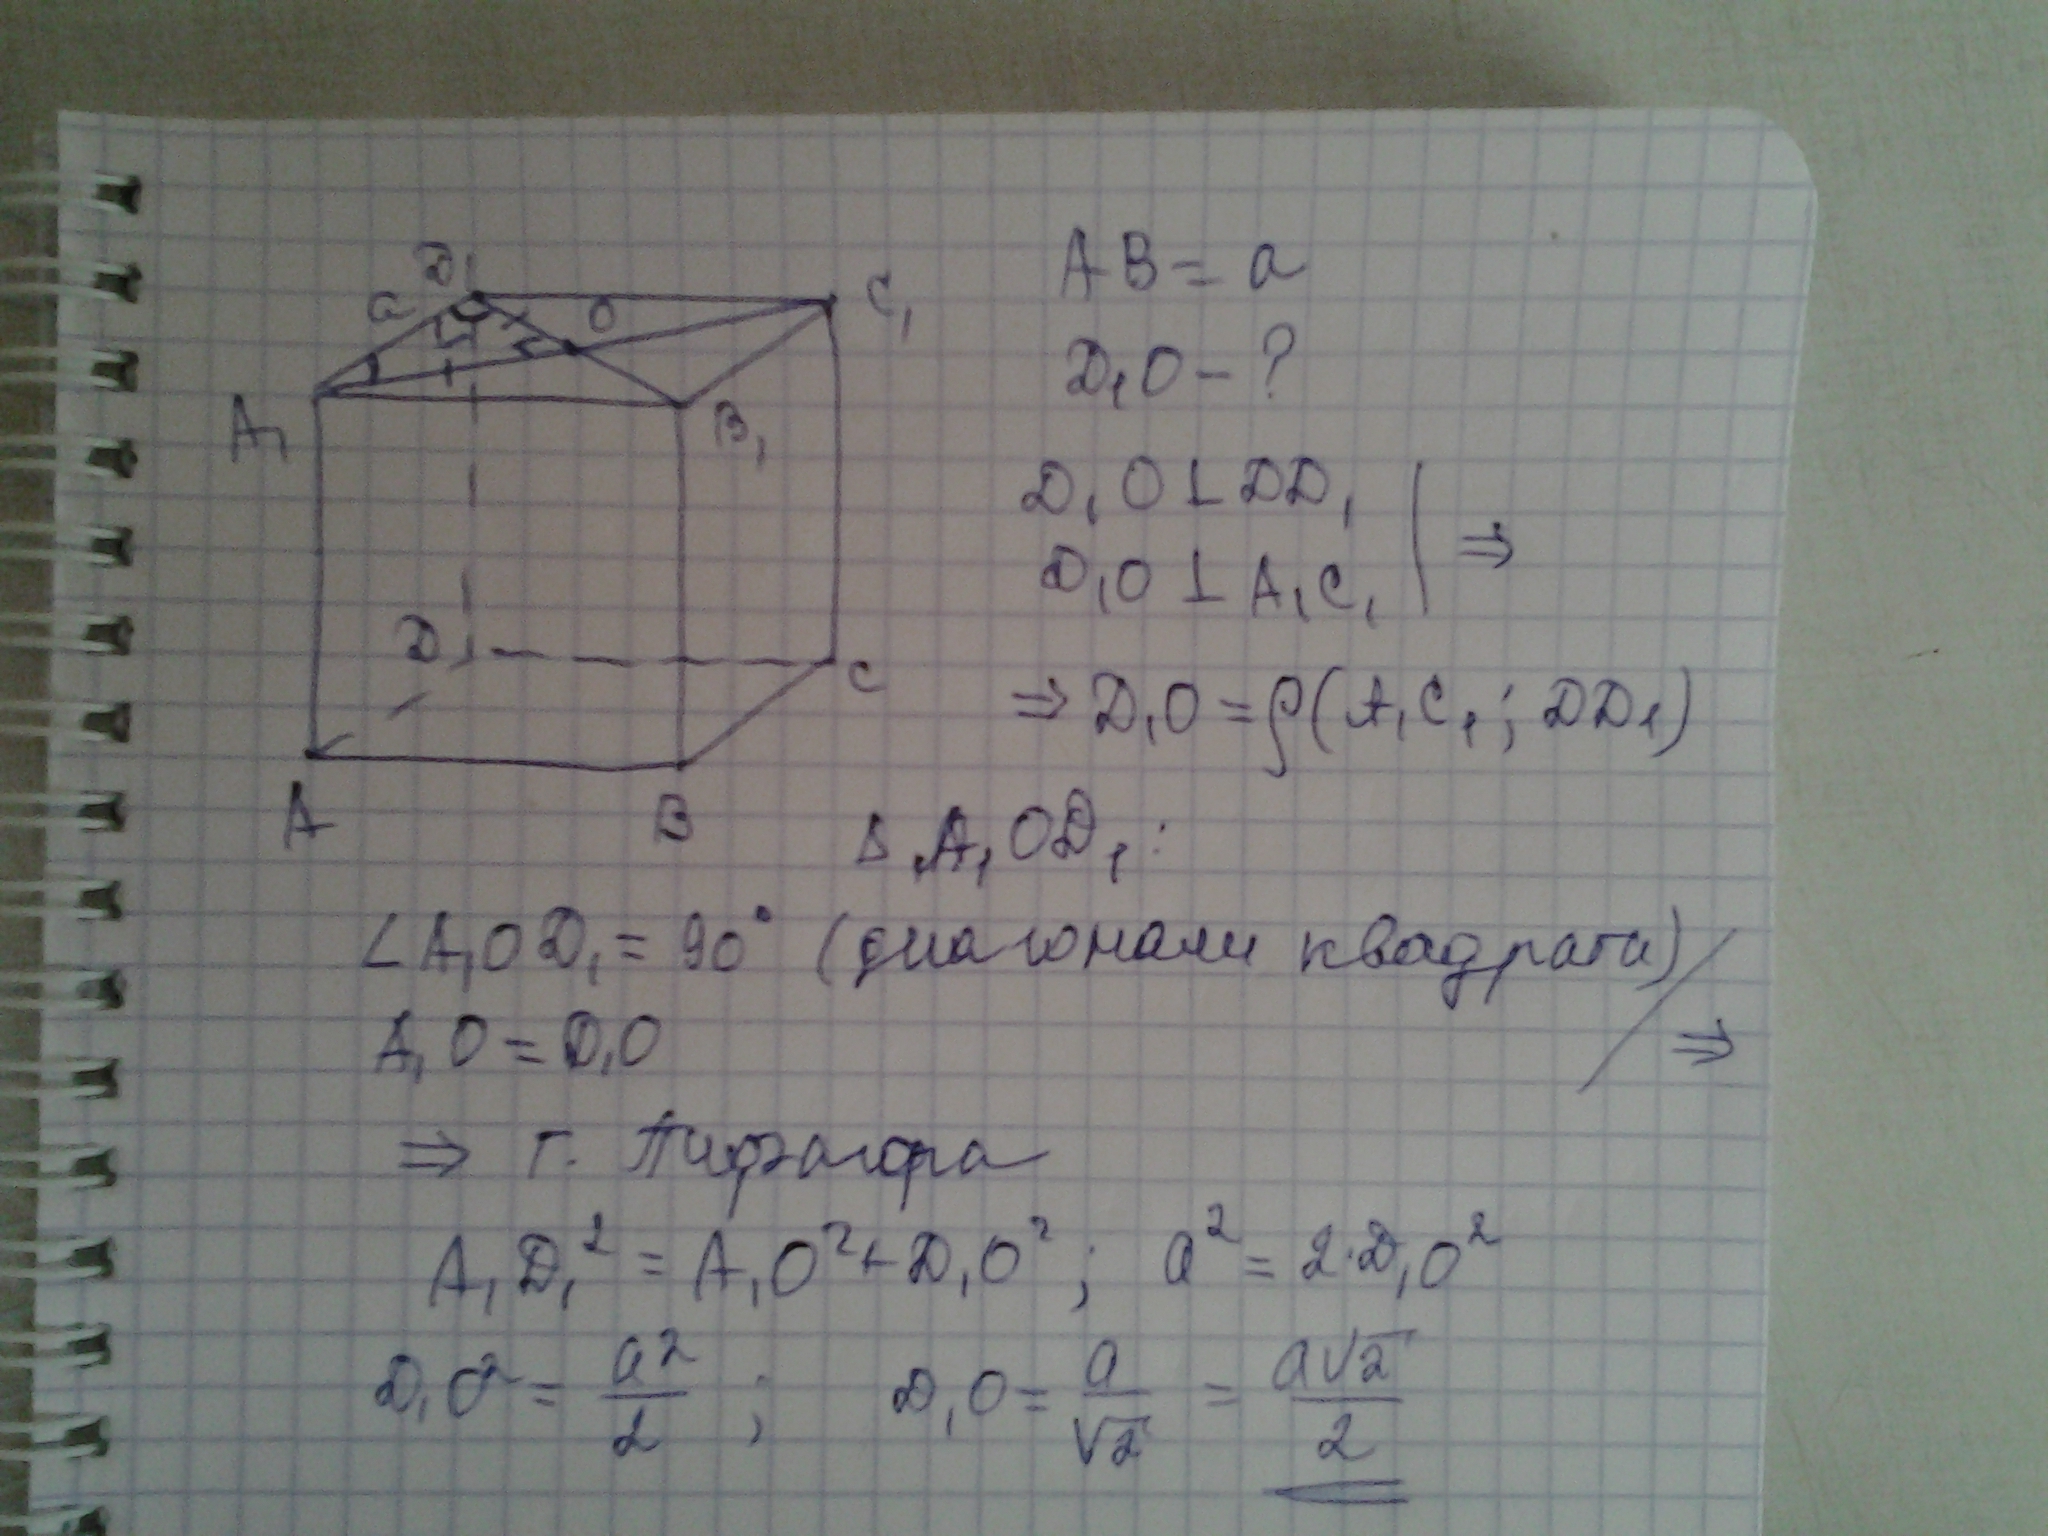 D₁
a
O
C₁
A₁
B₁
D
C
A
B
AB = a
D₁O - ?
D₁O ⊥ DD₁
D₁O ⊥ A₁C₁ | ⇒
⇒ D₁O = ρ(A₁C₁; DD₁)
Δ A₁OD₁:
∠A₁OD₁ = 90° (диагонали квадрата)
A₁O = D₁O ⇒
⇒ т. Пифагора
A₁D₁² = A₁O² + D₁O²; a² = 2·D₁O²
D₁O² = a²/2; D₁O = a/√2 = a√2/2